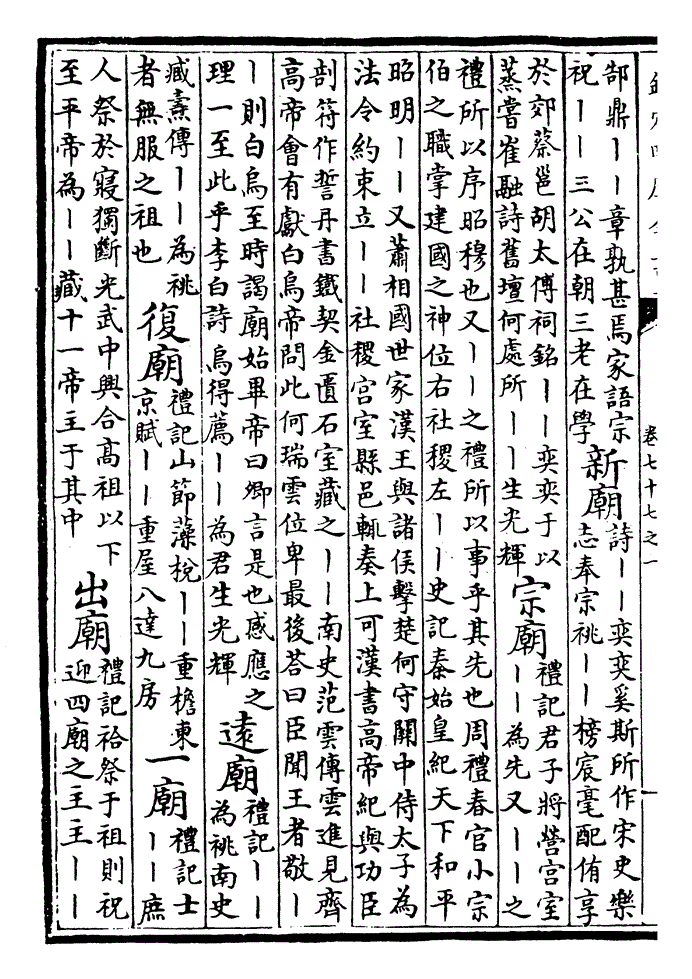 卷七十七之一
郜鼎丨丨章孰甚焉家語宗
祝丨丨三公在朝三老在學
新廟
詩丨丨奕奕奚斯所作宋史樂
志奉宗祧丨丨榜宸毫配侑享
於郊蔡邕胡太傅祠銘丨丨奕奕于以
蒸嘗崔融詩舊壇何處所丨丨生光輝
宗廟
禮記君子將營宫室
丨丨為先又丨丨之
禮所以序昭穆也又丨丨之禮所以事乎其先也周禮春官小宗
伯之職掌建國之神位右社稷左丨丨史記秦始皇紀天下和平
昭明丨丨又蕭相國世家漢王與諸侯擊楚何守關中侍太子為
法令約束立丨丨社稷宫室縣邑輒奏上可漢書高帝紀與功臣
剖符作誓丹書鐵契金匱石室藏之丨丨南史范雲傳雲進見齊
高帝會有獻白烏帝問此何瑞雲位卑最後荅曰臣聞王者敬丨
丨則白烏至時謁廟始畢帝曰卿言是也感應之
理一至此乎李白詩烏得薦丨丨為君生光輝
遠廟
禮記丨丨
為祧南史
臧燾傳丨丨為祧
者無服之祖也
復廟
禮記山節藻梲丨丨重檐東
京賦丨丨重屋八達九房
一廟
禮記士
丨丨庶
人祭於寢獨斷光武中興合高祖以下
至平帝為丨丨藏十一帝主于其中
出廟
禮記祫祭于祖則祝
迎四廟之主主丨丨